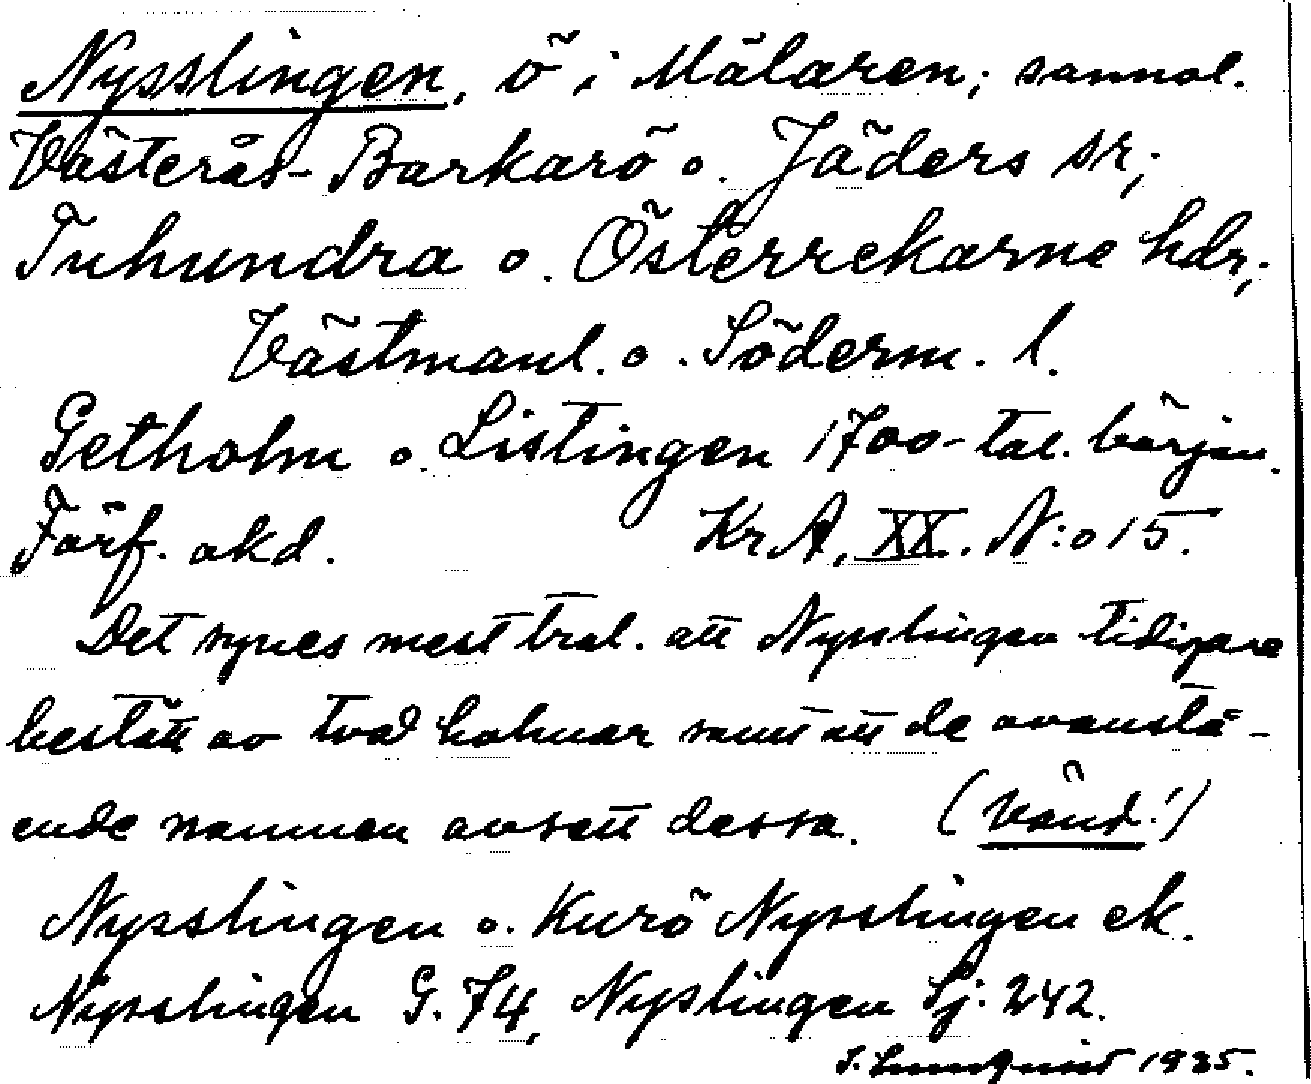 Nysslingen, ö i Mälaren; sannol.
Västerås-Barkarö o. Jäders sr;
Tuhundra o. Österrekarne hdr;
Västmanl. o. Söderm. l.
Getholm o. Listingen 1700-tal. början.
Förf. okd. Kr A, XX. N:o 15.
Det synes mest trol. att Nysslingen tidigare
bestått av två holmar samt att de ovanstå-
ende namnen avsett dessa. (Vänd!)
Nysslingen o. Kurö Nysslingen ek.
Nysslingen G. 74, Nyslingen Sj: 242.
1935.